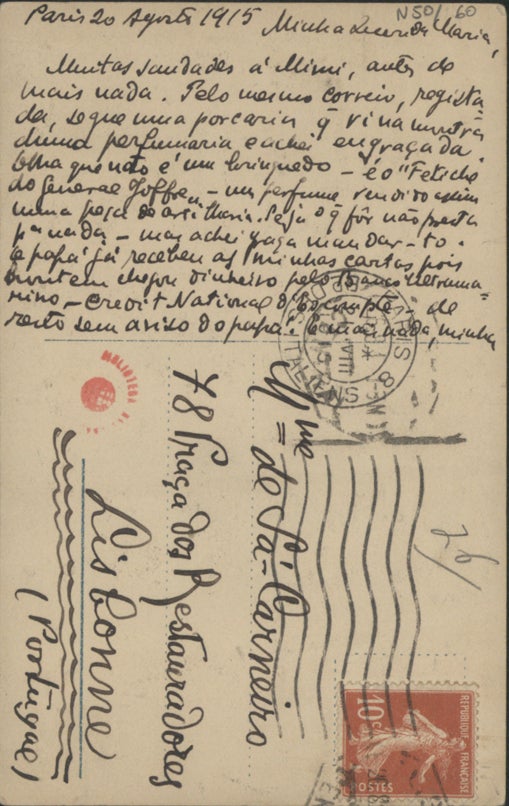 N50/60
Paris 20 Agosto 1915
Minha querida Maria,
Muitas saudades á Mimi, antes de
mais nada. Pelo mesmo correio, regista-
da, segue uma porcaria q̃ vi na montra
duma perfumaria e achei engraçada.
Olha que não é um brinquedo – é o "Fetiche
do General Joffre" – um perfume vendido assim
numa peça de artilharia. Seja o q̃ fôr não presta
pª nada – mas achei graça mandar-to.
O papá já recebeu as minhas cartas pois
hontem chegou dinheiro pelo Banco Ultrama-
rino – Credit National d'Escompte – de
resto sem aviso do papá. E mais nada, minha
Mme de Sá-Carneiro
78 Praça dos Restauradores
Lisbonne
(Portugal)
ITALIENS
PARIS
8
VIII
REPUBLIQUE FRANÇAISE
10c
POSTES